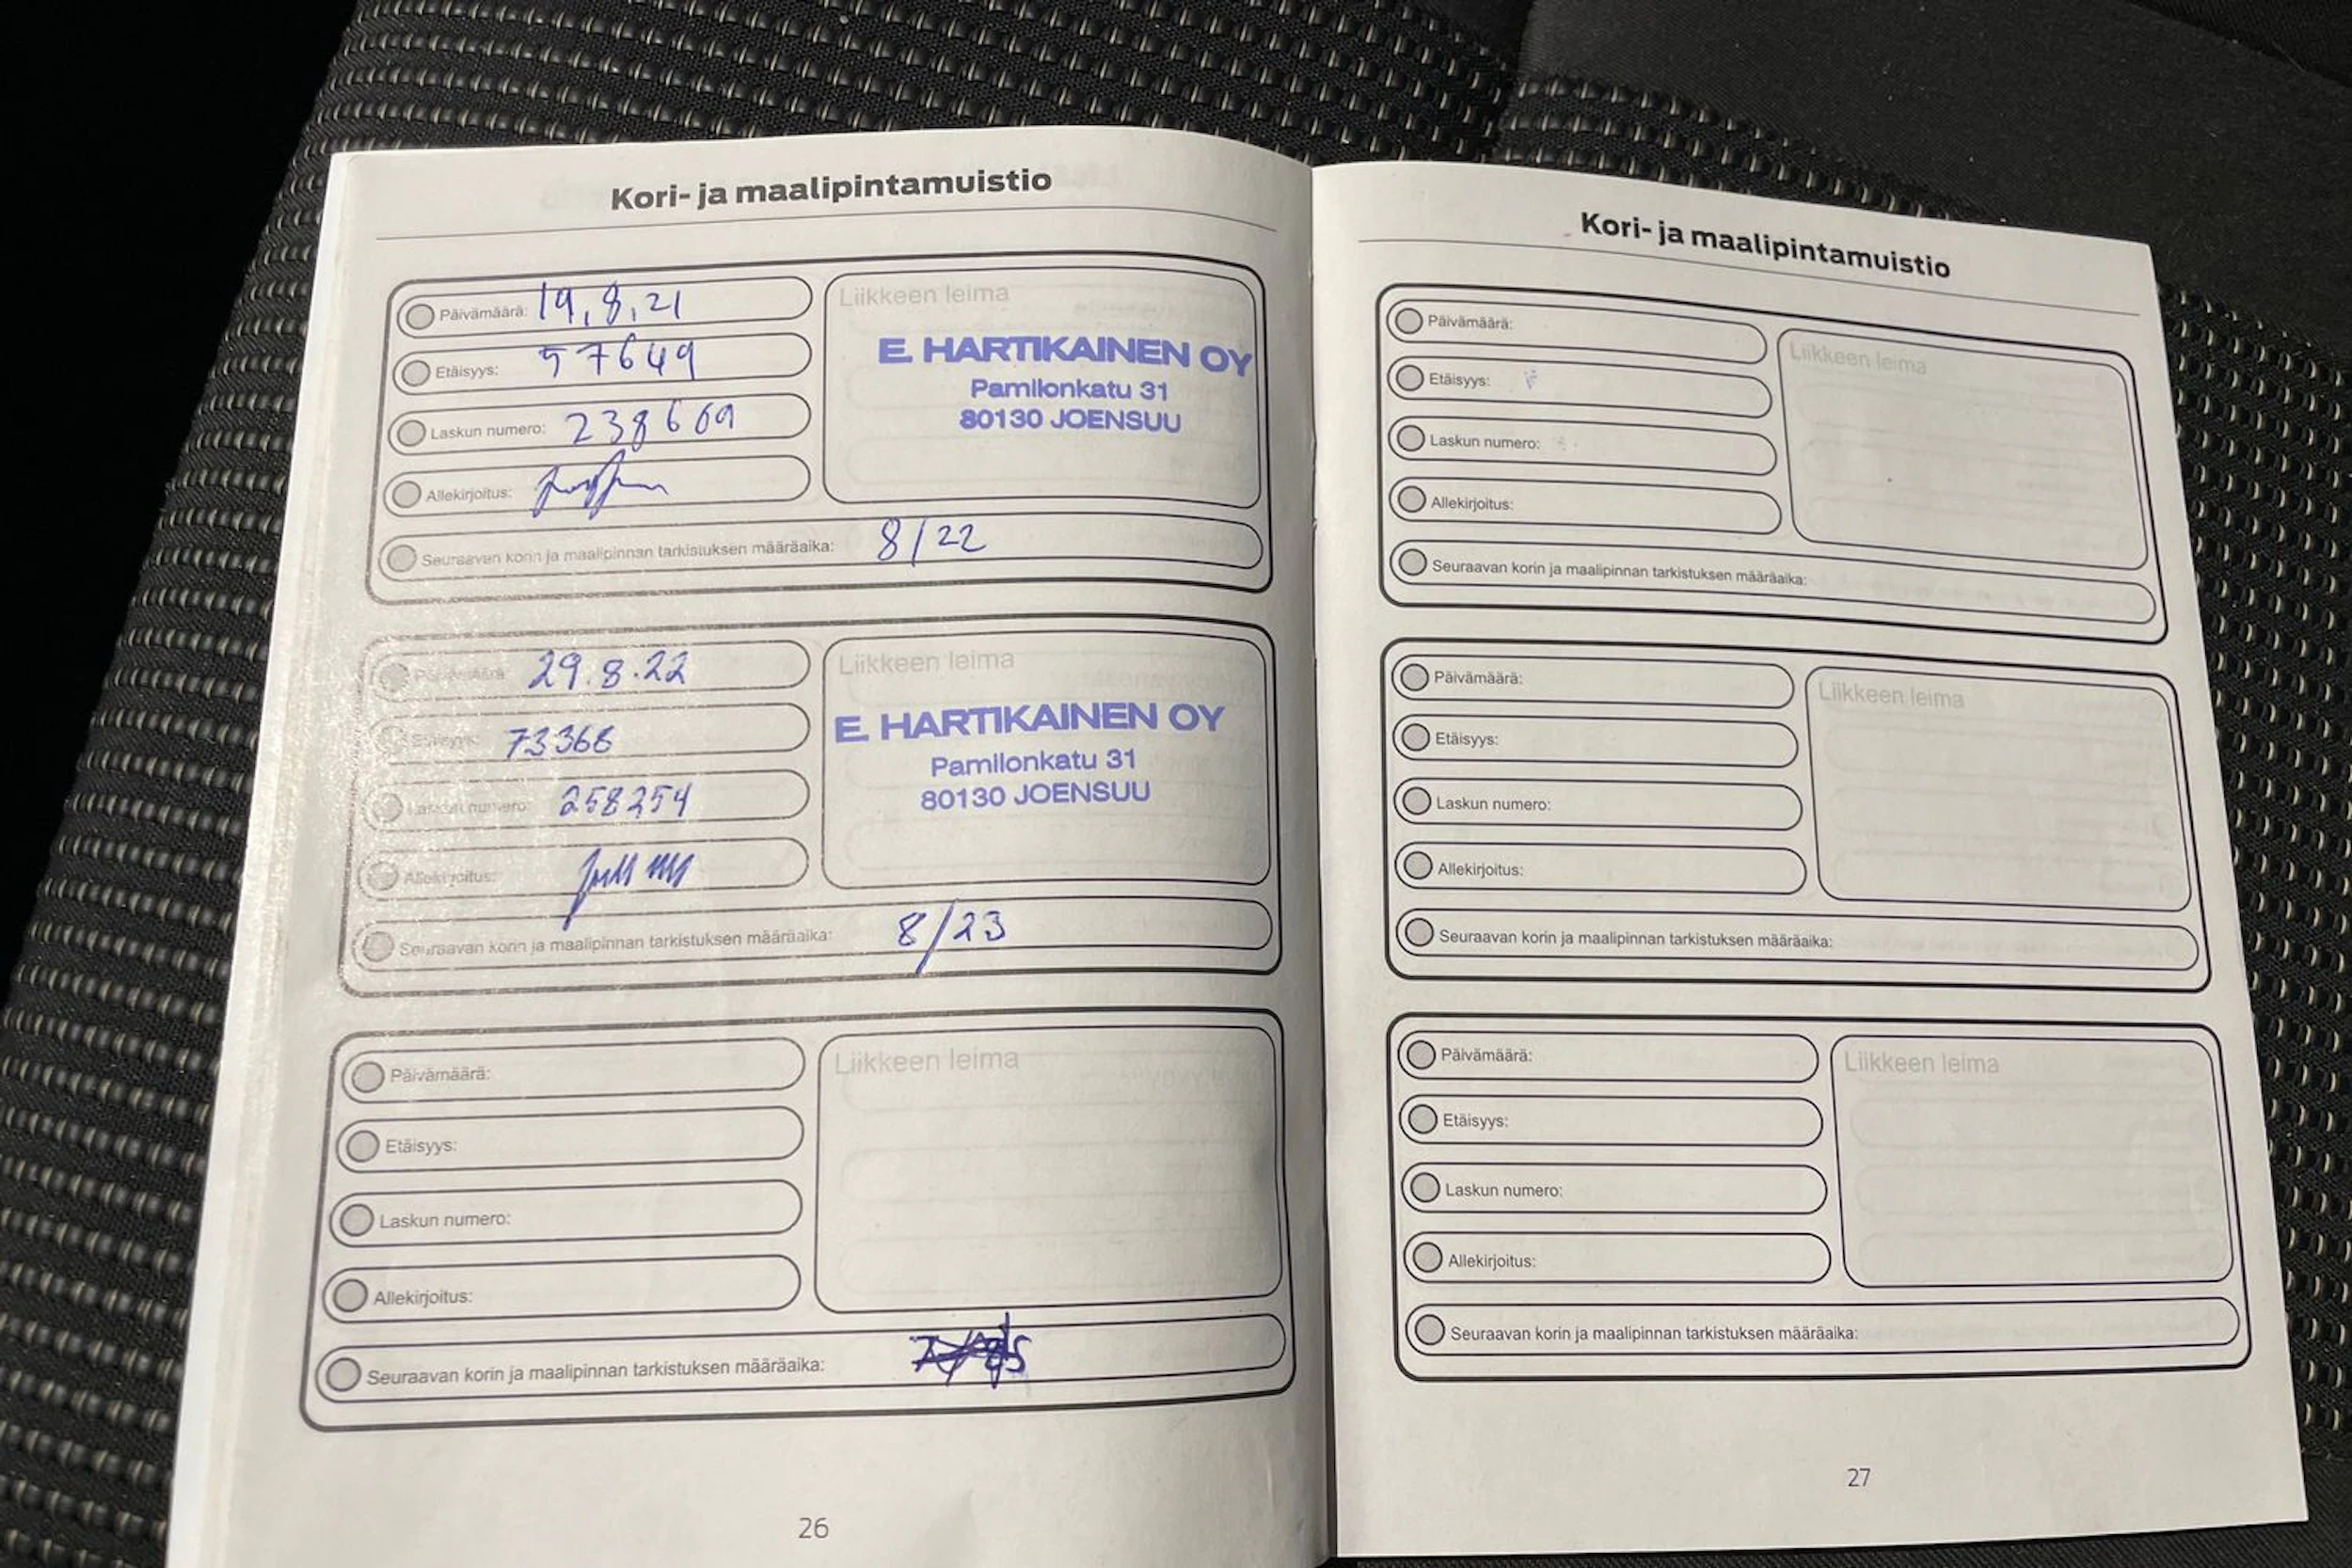 Kori- ja maalipintamuistio
Päivämäärä: 19,8,21
Etäisyys: 57649
Laskun numero: 238669
Allekirjoitus:
Liikkeen leima
E. HARTIKAINEN OY
Pamilonkatu 31
80130 JOENSUU
Seuraavan korin ja maalipinnan tarkistuksen määräaika: 8/22
Päivämäärä: 29.8.22
Etäisyys: 73366
Laskun numero: 258254
Allekirjoitus:
Liikkeen leima
E. HARTIKAINEN OY
Pamilonkatu 31
80130 JOENSUU
Seuraavan korin ja maalipinnan tarkistuksen määräaika: 8/23
Päivämäärä:
Etäisyys:
Laskun numero:
Allekirjoitus:
Liikkeen leima
Seuraavan korin ja maalipinnan tarkistuksen määräaika:
26
Kori- ja maalipintamuistio
Päivämäärä:
Etäisyys:
Laskun numero:
Allekirjoitus:
Liikkeen leima
Seuraavan korin ja maalipinnan tarkistuksen määräaika:
Päivämäärä:
Etäisyys:
Laskun numero:
Allekirjoitus:
Liikkeen leima
Seuraavan korin ja maalipinnan tarkistuksen määräaika:
Päivämäärä:
Etäisyys:
Laskun numero:
Allekirjoitus:
Liikkeen leima
Seuraavan korin ja maalipinnan tarkistuksen määräaika:
27